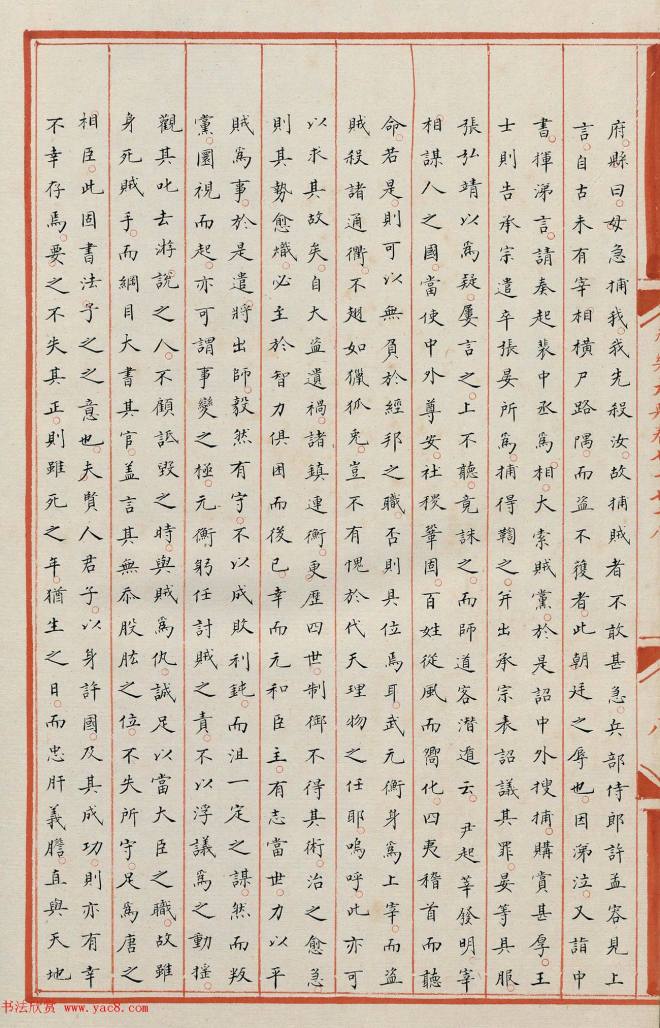 府縣曰。毋急捕我。我先殺汝。故捕賊者不敢甚急。兵部侍郎許孟容見上
言。自古未有宰相橫尸路隅。而盜不獲者。此朝廷之辱也。因涕泣。又詣中
書。揮涕言。請奏起裴中丞爲相。大索賊黨。於是詔中外搜捕。購賞甚厚。王
士則告承宗遣卒張晏所爲。捕得鞫之。并出承宗表。詔議其罪。晏等具服。
張弘靖以爲疑。屢言之。上不聽。竟誅之。而師道客潛遁云。尹起莘發明。宰
相謀人之國。當使中外尊安。社稷鞏固。百姓從風而嚮化。四夷稽首而聽
命。若是。則可以無負於經邦之職。否則具位焉耳。武元衡身爲上宰。而盜
賊殺諸通衢。不翅如獵狐兔。豈不有愧於代天理物之任耶。嗚呼。此亦可
以求其故矣。自大盜遺禍。諸鎮連衡。更歷四世。制御不得其術。治之愈急
則其勢愈熾。必至於智力俱困而後已。幸而元和臣主。有志當世。力以平
賊爲事。於是遣將出師。毅然有守。不以成敗利鈍。而沮一定之謀。然而叛
黨。圜視而起。亦可謂事變之極。元衡躬任討賊之責。不以浮議爲之動搖。
觀其叱去游說之人。不顧詆毀之時。與賊爲仇。誠足以當大臣之職。故雖
身死賊手。而綱目大書其官。蓋言其無忝股肱之位。不失所守。足爲唐之
相臣。此固書法予之之意也。夫賢人君子。以身許國。及其成功。則亦有幸
不幸存焉。要之不失其正。則雖死之年。猶生之日。而忠肝義膽。直與天地
八
书法欣赏 www.yac8.com